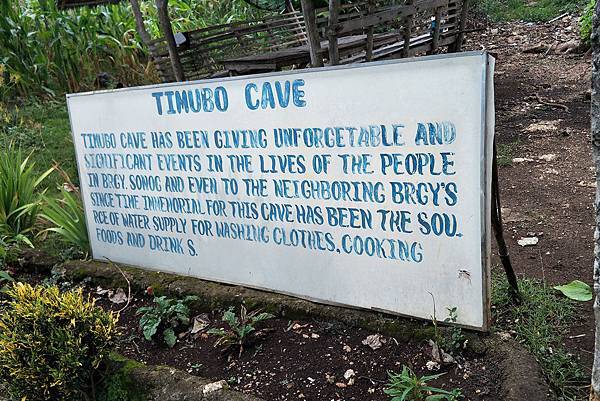 TIMUBO CAVE
TIMUBO CAVE HAS BEEN GIVING UNFORGETABLE AND
SIGNIFICANT EVENTS IN THE LIVES OF THE PEOPLE
IN BRGY. SONOG AND EVEN TO THE NEIGHBORING BRGY'S
SINCE TIME INMEMORIAL. FOR THIS CAVE HAS BEEN THE SOU_
RCE OF WATER SUPPLY FOR WASHING CLOTHES, COOKING
FOODS AND DRINK S.